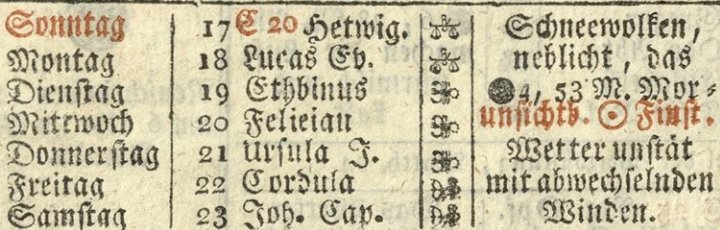 Sonntag 17 C 20 Hetwig. Schneewolken,
Montag 18 Lucas Ev. neblicht, das
Dienstag 19 Ethbinus 4, 53 M. Mor⸗
Mittwoch 20 Felieian unsichtb. ☉ Finst.
Donnerstag 21 Ursula J. Wetter unstät
Freitag 22 Cordula mit abwechselnden
Samstag 23 Joh. Cap. Winden.